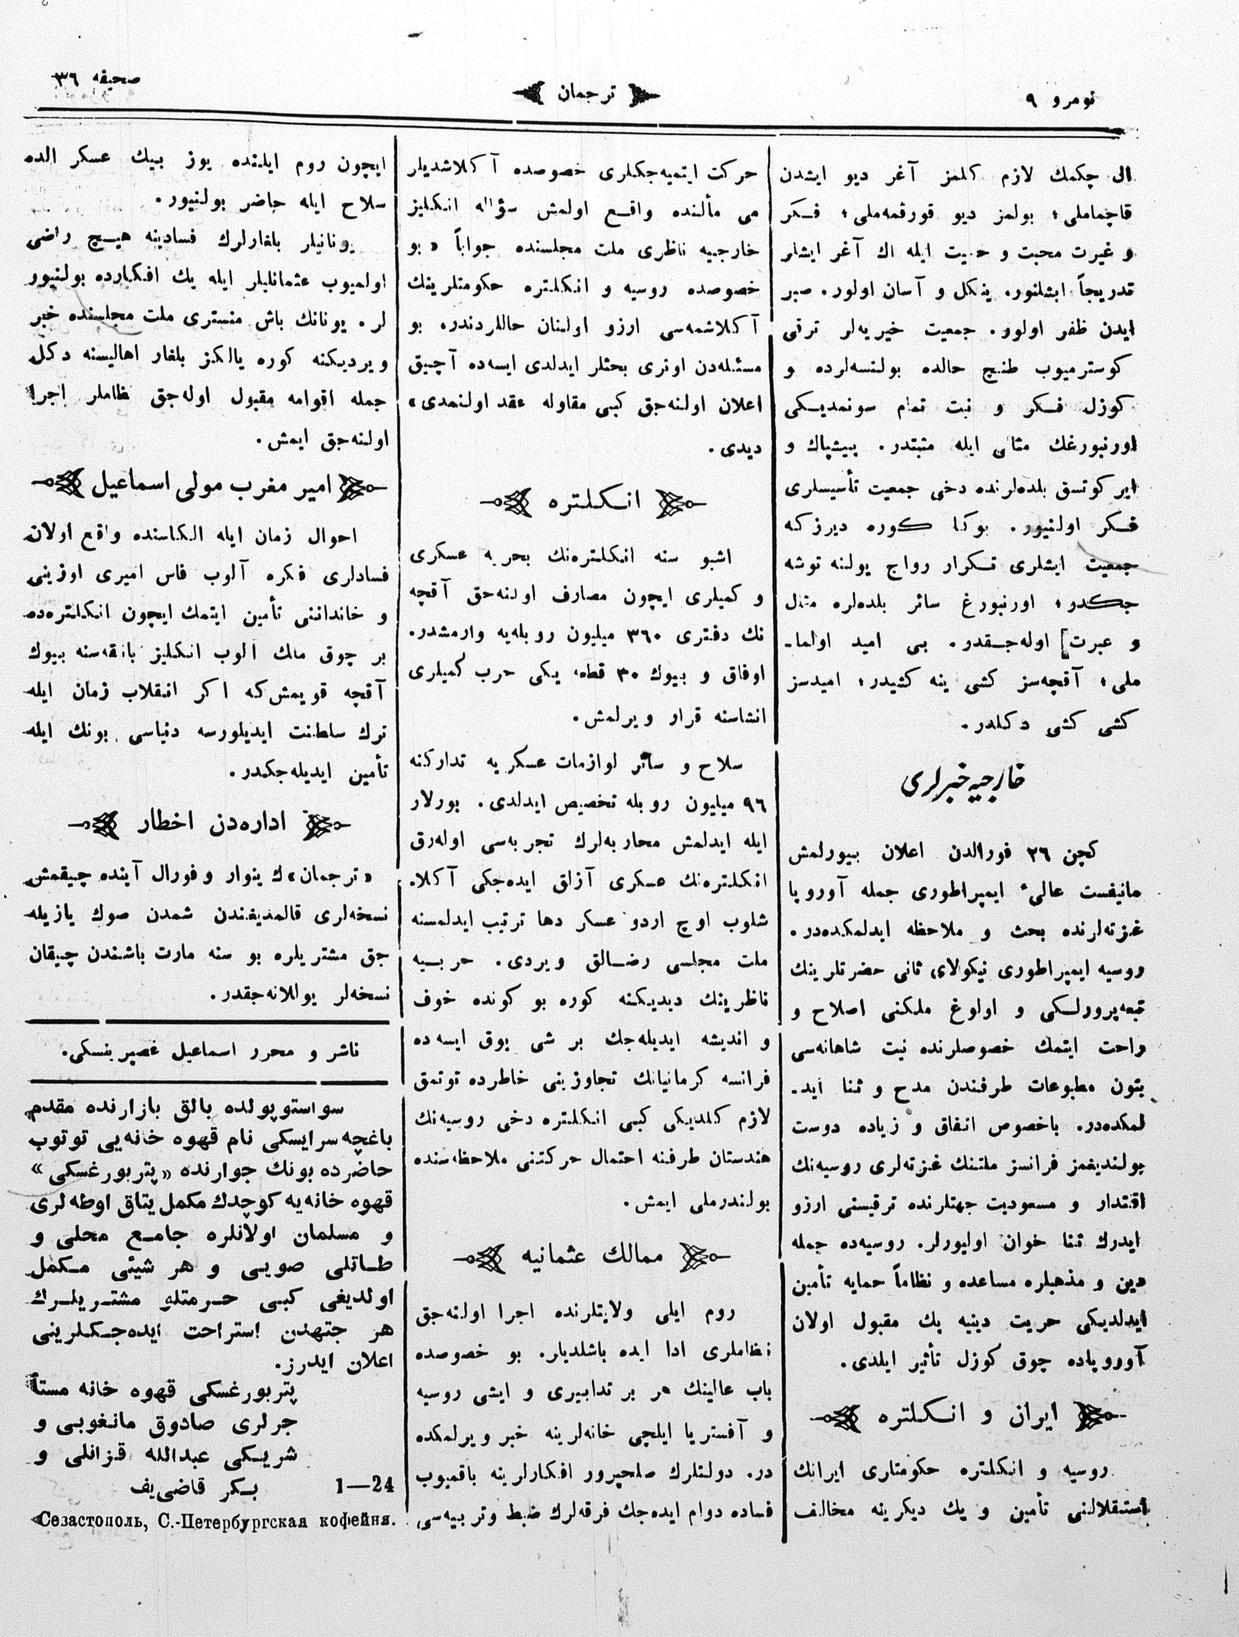 نومرو ٩
ترجمان
صحیفه ٣٦
ال چکمك لازم کلمز آغر دیو ایشدن
قاچماملی؛ بولمز دیو قورقمه‌ملی؛ فکر
و غیرت محبت و حمیت ایله اك آغر ایشلر
تدریجاً ایشلنور. ینکل و آسان اولور. صبر
ایدن ظفر اولور. جمعیت خیریه‌لر ترقی
کوسترمیوب طنچ حالده بولنسه‌لرده و
کوزل فکر و نیت تمام سونمدیکی
اورنبورغك مثالی ایله مثبتدر. پیشپاك و
ایرکوتسق بلده‌لرنده دخی جمعیت تأسیسلری
فکر اولنیور. بوکا کوره دیرزکه
جمعیت ایشلری تکرار رواج یولنه توشه
جکدر؛ اورنبورغ سائر بلده‌لره مثال
و عبرت] اوله‌جقدر. بی امید اولما-
ملی؛ آقچه‌سز کشی ینه کشیدر؛ امیدسز
کشی کشی دکلدر.
خارجیه خبرلری
کچن ٢٦ فورالدن اعلان بیورلمش
مانیفست عالیٔ ایمپراطوری جمله آوروپا
غزته‌لرنده بحث و ملاحظه ایدلمکده‌در.
روسیه ایمپراطوری نیکولای ثانی حضرتلرینك
تبعه‌پرورلکی و اولوغ ملکنی اصلاح و
راحت ایتمك خصوصلرنده نیت شاهانه‌سی
بتون مطبوعات طرفندن مدح و ثنا اید.
لمکده‌در. باخصوص اتفاق و زیاده دوست
بولندیغمز فرانسز ملتنك غزته‌لری روسیه‌نك
اقتدار و مسعودیت جهتلرنده ترقیسنی ارزو
ایدرك ثنا خوان اولیورلر. روسیه‌ده جمله
دین و مذهبلره مساعده و نظاماً حمایه تأمین
ایدلدیکی حریت دینیه پك مقبول اولان
آوروپاده چوق کوزل تأثیر ایلدی.
ایران و انکلتره
روسیه و انکلتره حکومتلری ایرانك
استقلالنی تأمین و یك دیکرینه مخالف
حرکت ایتمیه‌جکلری خصوصده آکلاشدیلر
می مألنده واقع اولمش سؤاله انکلیز
خارجیه ناظری ملت مجلسنده جواباً «بو
خصوصده روسیه و انکلتره حکومتلرینك
آکلاشمه‌سی ارزو اولنان حاللردندر. بو
مسئله‌دن اوتری بحثلر ایدلدی ایسه‌ده آچیق
اعلان اولنه‌جق کبی مقاوله عقد اولنمدی»
دیدی.
انکلتره
اشبو سنه انکلتره‌نك بحریه عسکری
و کمیلری ایچون مصارف اولنه‌جق آقچه
نك دفتری ٣٦٠ میلیون روبله‌یه وارمشدر.
اوفاق و بیوك ٣٠ قطعه یکی حرب کمیلری
انشاسنه قرار ویرلمش.
سلاح و سائر لوازمات عسکریه تدارکنه
٩٦ میلیون روبله تخصیص ایدلدی. بورلار
ایله ایدلمش محاربه‌لرك تجربه‌سی اوله‌رق
انکلتره‌نك عسکری آزلق ایده‌جکی آکلا.
شلوب اوچ اردو عسکر دها ترتیب ایدلمسنه
ملت مجلسی رضالق ویردی. حربیه
ناظرینك دیدیکنه کوره بو کونده خوف
و اندیشه ایدیله‌جك بر شی یوق ایسه ده
فرانسه کرمانیانك تجاوزینی خاطرده توتمق
لازم کلدیکی کبی انکلتره دخی روسیه‌نك
هندستان طرفنه احتمال حرکتنی ملاحظه‌سنده
بولندرملی ایمش.
ممالك عثمانیه
روم ایلی ولایتلرنده اجرا اولنه‌جق
نظاملری ادا ایده باشلدیلر. بو خصوصده
باب عالینك هر بر تدابیری و ایشی روسیه
و آفستریا ایلچی خانه‌لرینه خبر ویرلمکده
در. دولتلرك صلحپرور افکارلرینه باقمیوب
فساده دوام ایده‌جك فرقه‌لرك ضبط وتربیه‌سی
ایچون روم ایلنده یوز بیك عسکر الده
سلاح ایله حاضر بولنیور.
یونانیلر بلغارلرك فسادینه هیچ راضی
اولمیوب عثمانلیلر ایله یك افکارده بولنیور
لر. یونانك باش منستری ملت مجلسنده خبر
ویردیکنه کوره یالکز بلغار اهالیسنه دکل
جمله اقوامه مقبول اوله‌جق نظاملر اجرا
اولنه‌جق ایمش.
امیر مغرب مولی اسماعیل
احوال زمان ایله الکاسنده واقع اولان
فسادلری فکره آلوب فاس امیری اوزینی
و خاندانی تأمین ایتمك ایچون انکلتره‌ده
بر چوق مالك آلوب انکلیز بانقه‌سنه بیوك
آقچه قویمش‌که اکر انقلاب زمان ایله
ترك سلطنت ایدیلورسه دنیاسی بونك ایله
تأمین ایدیله‌جکدر.
اداره‌دن اخطار
«ترجمان»ك ینوار و فورال آینده چیقمش
نسخه‌لری قالمدیغندن شمدن صوك یازیله
جق مشتریلره بو سنه مارت باشندن چیقان
نسخه‌لر یوللانه‌جقدر.
ناشر و محرر اسماعیل غصپرینسکی.
سواستوپولده بالق بازارنده مقدم
باغچه‌سرایسکی نام قهوه خانه‌یی توتوب
حاضرده بونك جوارنده «پتربورغسکی»
قهوه خانه‌یه کوچدك مکمل یتاق اوطه‌لری
و مسلمان اولانلره جامع محلی و
طاتلی صویی و هر شیئی مکمل
اولدیغی کبی حرمتلو مشتریلرك
هر جتهدن استراحت ایده‌جکلرینی
اعلان ایدرز.
پتربورغسکی قهوه خانه مستأ
جرلری صادوق مانغوبی و
شریکی عبدالله قزانلی و
بکر قاضی‌یف
1—24
Севастополь, С.-Петербургская кофейня.